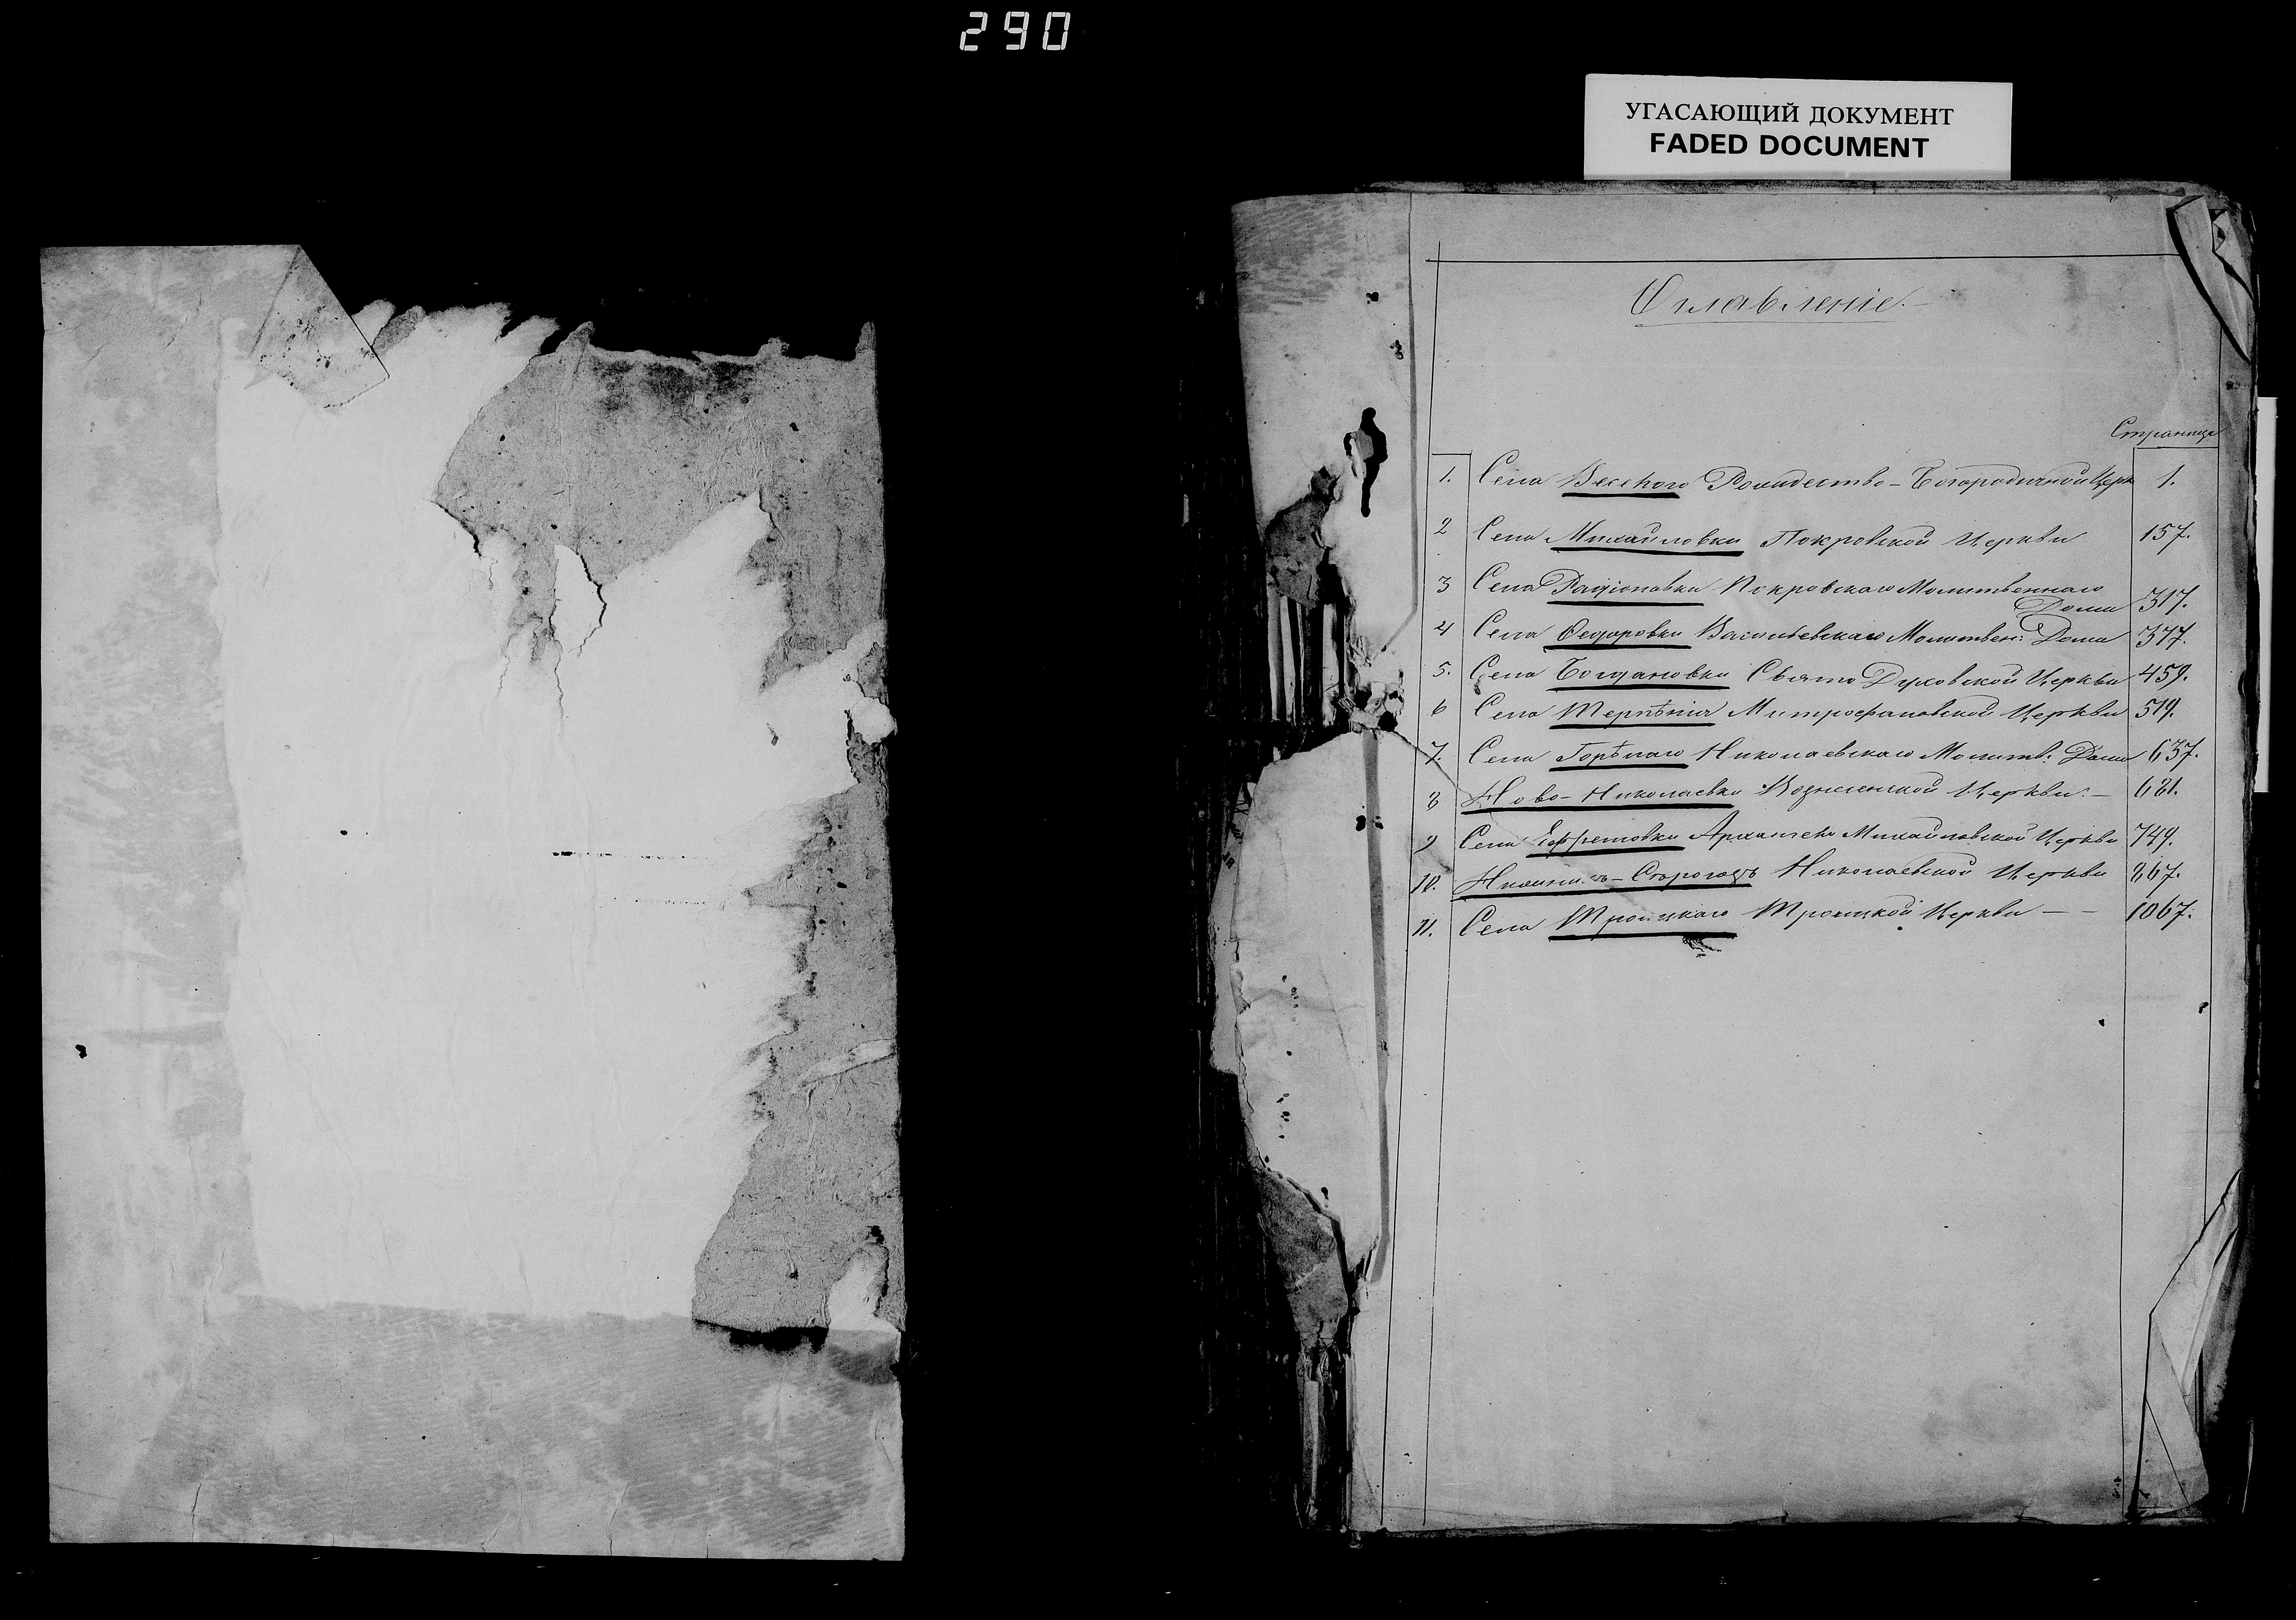 290
УГАСАЮЩИЙ ДОКУМЕНТ
FADED DOCUMENT
Оглавленіе.
Страница
1. Села Веселого Рождество-Богородичной Церк 1.
2 Села Михайловки Покровской Церкви 157.
3 Села Радіоновки Покровскаго Молитвеннаго
Дома 317.
4 Села Ѳедоровки Васильевскаго Молитвен: Дома 377.
5. Села Богдановки Свято Духовской Церкви 459.
6 Села Терпѣнія Митрофановской Церкви 519.
7. Села Горѣлаго Николаевскаго Молитв: Дома 637.
8 Ново-Николаевки Вознесенской Церкви. — 681.
9 Села Ефремовки Архангело Михайловской Церкви 749.
10. Николаевской Церкви 867.
11. Села Троицкаго Троицкой Церкви — — 1067.